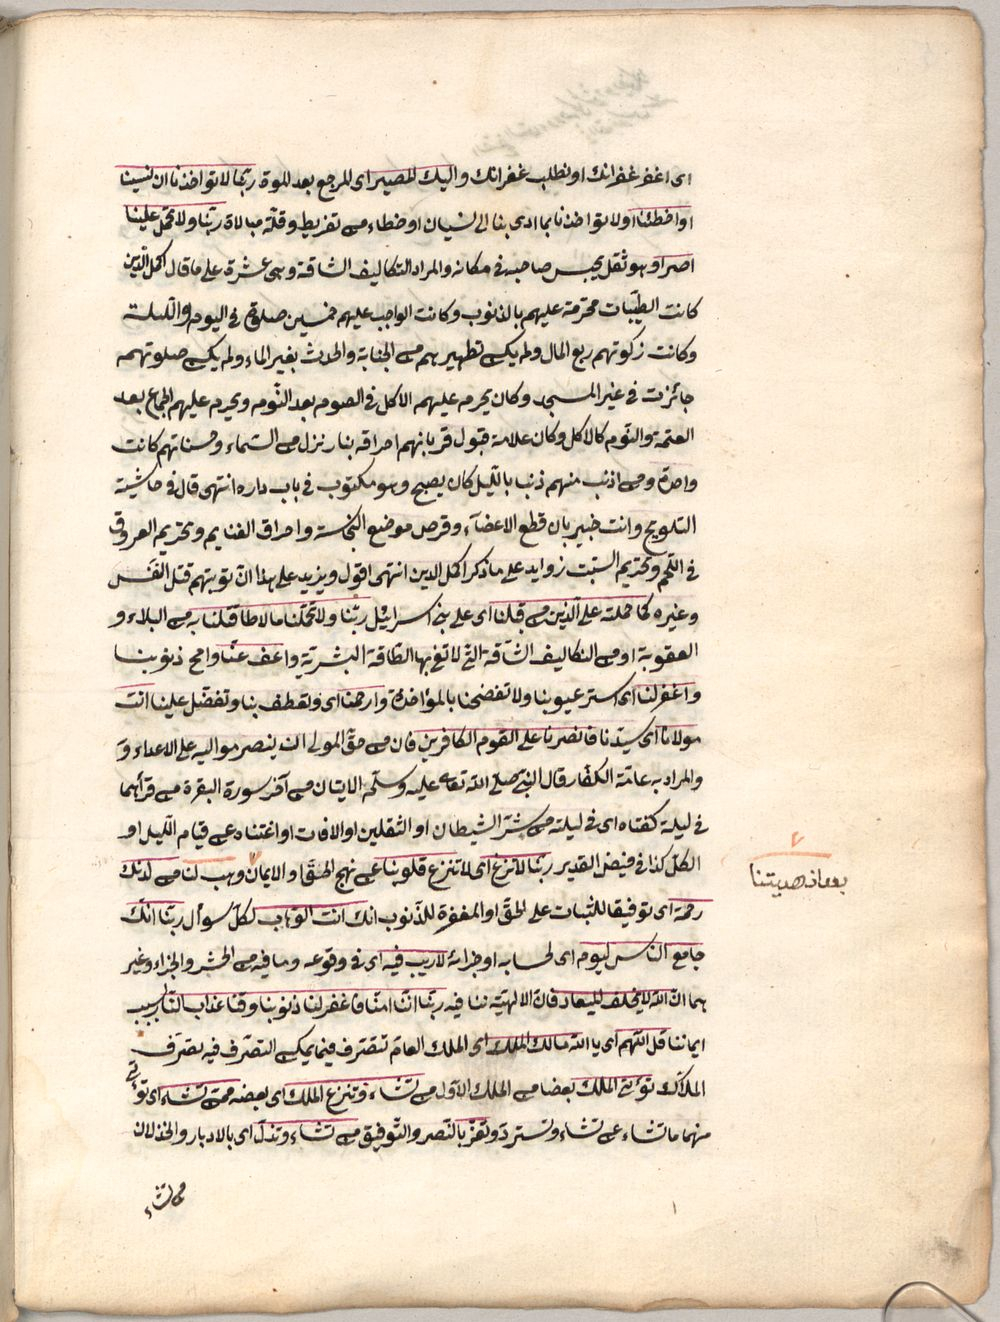 اى اغفر غفرانك او نطلب غفرانك واليك المصير اى المرجع بعد الموت ربّنا لا تؤاخذنا ان نسينا
او اخطئنا اولا تؤاخذنا بما ادى بنا الى نسيان او خطاء من تفريط وقلّة مبالاة ربّنا ولا تحمل علينا
اصرا وهو ثقل يحبس صاحبه فى مكانه والمراد التكاليف الشاقة وهى عشرة على ما قال اكمل الدّين
كانت الطيّبات محرّمة عليهم بالذنوب وكانت الواجب عليهم خمسين صلوة فى اليوم والّليلة
وكانت زكوتهم ربع المال ولم يكن تطهيرهم من الجنابة والحدث بغير الماء ولم يكن صلوتهم
جائزت فى غير المسجد وكان يحرم عليهم الاكل فى الصوم بعد النّوم ويحرم عليهم الجماع بعد
العتمة والنّوم كالاكل وكان علامة قبول قربانهم احراقه بنار نزل من السّماء وحسناتهم كانت
واحدة ومن اذنب منهم ذنبا بالّليل كان يصبح وهو مكتوب فى باب داره انتهى قال فى حاشيته
التلويح وانت خبير بان قطع الاعضآء وقرض موضع النّجاسة واحراق الغنايم وتحريم العروق
فى اللّحم وتحريم السّبت زوايد على ما ذكر اكمل الدين انتهى اقول ويزيد على هذا انّ توبتهم قتل النّفس
وغيره كما حملته على الّذين من قبلنا اى على بنى اسرائيل ربّنا ولا تحمّلنا ما لا طاقة لنا به من البلاء و
العقوبة او من التكاليف الشّاقة الّتى لا تفى بها الطّاقة البشريّة واعف عنّا وامح ذنوبنا
واغفر لنا اى استر عيوبنا ولا تفضحنا بالمؤاخذة وارحمنا اى وتعطف بنا وتفضّل علينا انت
مولانا اى سيّدنا فانصرنا على القوم الكافرين فان من حقّ المولى ان ينصر مواليه على الاعداء و
والمراد به عامّة الكفّار قال النّبى صلى الله تعالى عليه وسلّم الايتان من آخر سورة البقرة من قرأهما
فى ليلة كفتاه اى فى ليلته من شرّ الشيطان او الثقلين او الافات او اغتناه عن قيام الّليل او
الكل كذا فى فيض القدير ربّنا لا تزغ اى لا تنزغ قلوبنا عن نهج الحقّ او الايمان وهب لنا من لدنك
بعد اذ هديتنا
رحمة اى توفيقا للثبات على الحقّ او المغفرة للذّنوب انك انت الوهّاب لكلّ سوأل ربّنا انّك
جامع النّاس ليوم اى لحسابه او جزائه لا ريب فيه اى فى وقوعه وما فيه من الحشر والجزاء وغير
هما انّ الله لا يخلف الميعاد فانّ الالهيّة تنافيه ربّنا انّنا امنّا فاغفر لنا ذنوبنا وقنا عذاب النّار بسبب
ايماننا قل الّلهم اى يا الله مالك الملك اى الملك العام تتصرّف فيما يمكن التصرّف فيه تصرّف
الملّاك تؤتى الملك بعضا من الملك الاوّل من تشاء وتنزع الملك اى بعضه ممّن تشاء اى تؤتى
منهما ما تشاء عن تشاء وتسترد وتعزّ بالنّصر والتّوفيق من تشاء وتذلّ اى بالادبار والخذلان
من تشاء